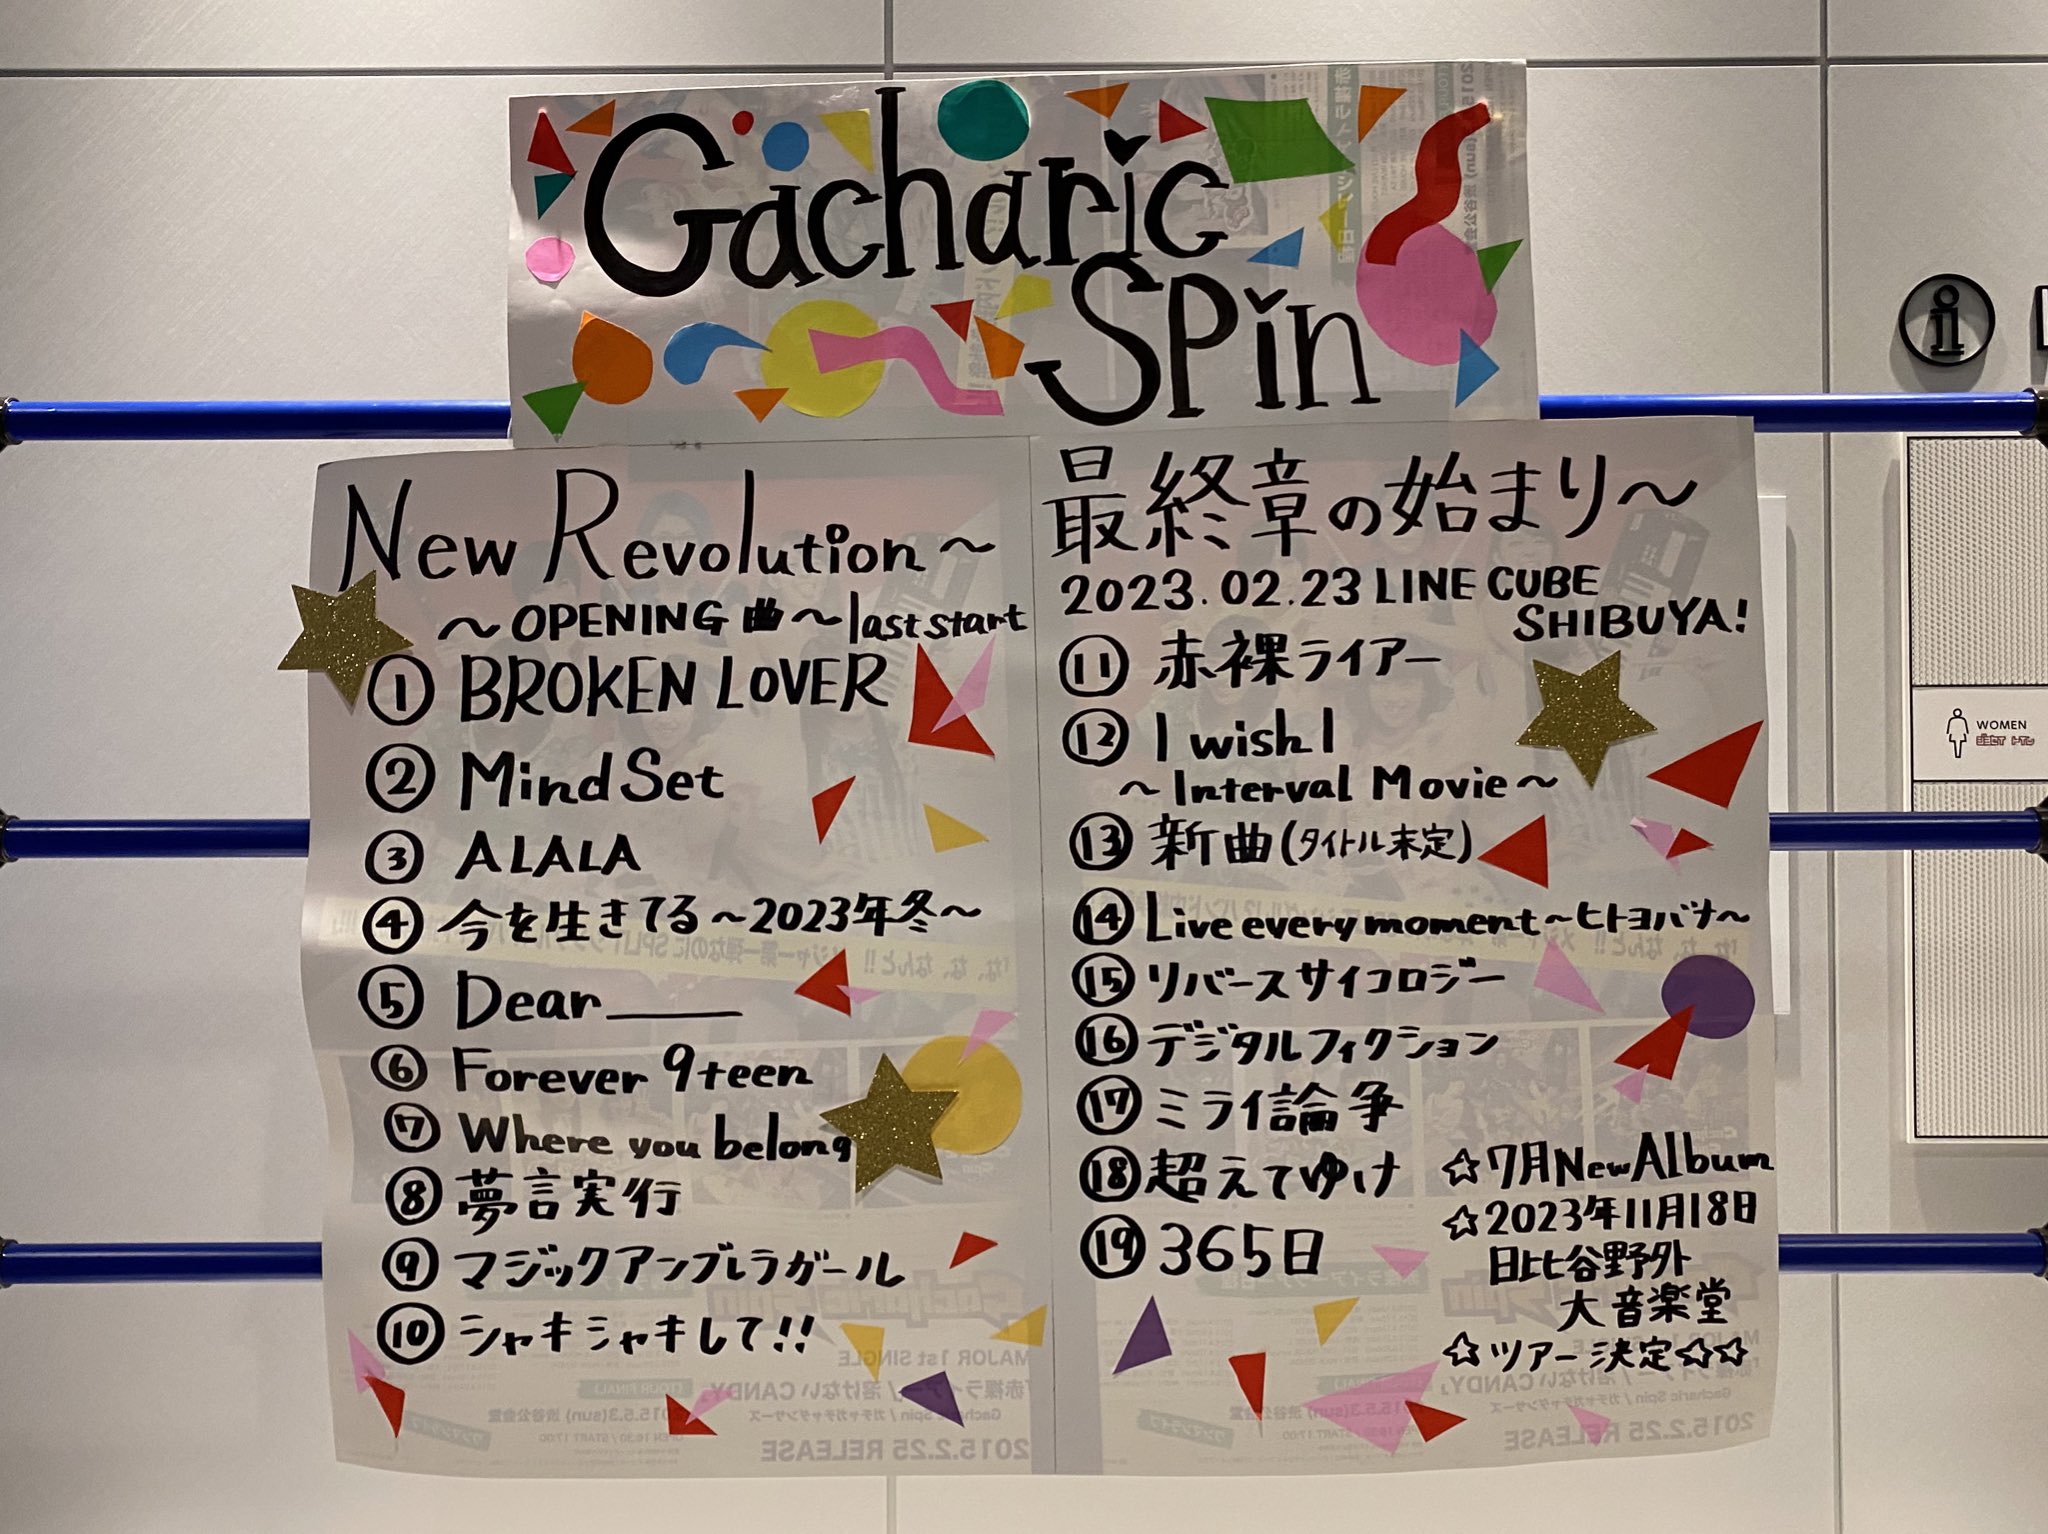 Gacharic
Spin
New Revolution～
～OPENING 曲～last start
① BROKEN LOVER
② MindSet
③ ALALA
④ 今を生きてる～2023年冬～
⑤ Dear____
⑥ Forever 9teen
⑦ Where you belong
⑧ 夢言実行
⑨ マジックアンブレラガール
⑩ シャキシャキして!!
最終章の始まり～
2023.02.23 LINE CUBE
SHIBUYA!
⑪ 赤裸ライアー
⑫ I wish I
～Interval Movie～
⑬ 新曲(タイトル未定)
⑭ Live every moment～ヒトヨバナ～
⑮ リバースサイコロジー
⑯ デジタルフィクション
⑰ ミライ論争
⑱ 超えてゆけ
⑲ 365日
☆7月New Album
☆2023年11月18日
日比谷野外
大音楽堂
☆ツアー決定☆☆
WOMEN
MAJOR 1st SINGLE
「赤裸ライアー / 溶けないCANDY」
2015.2.25 RELEASE